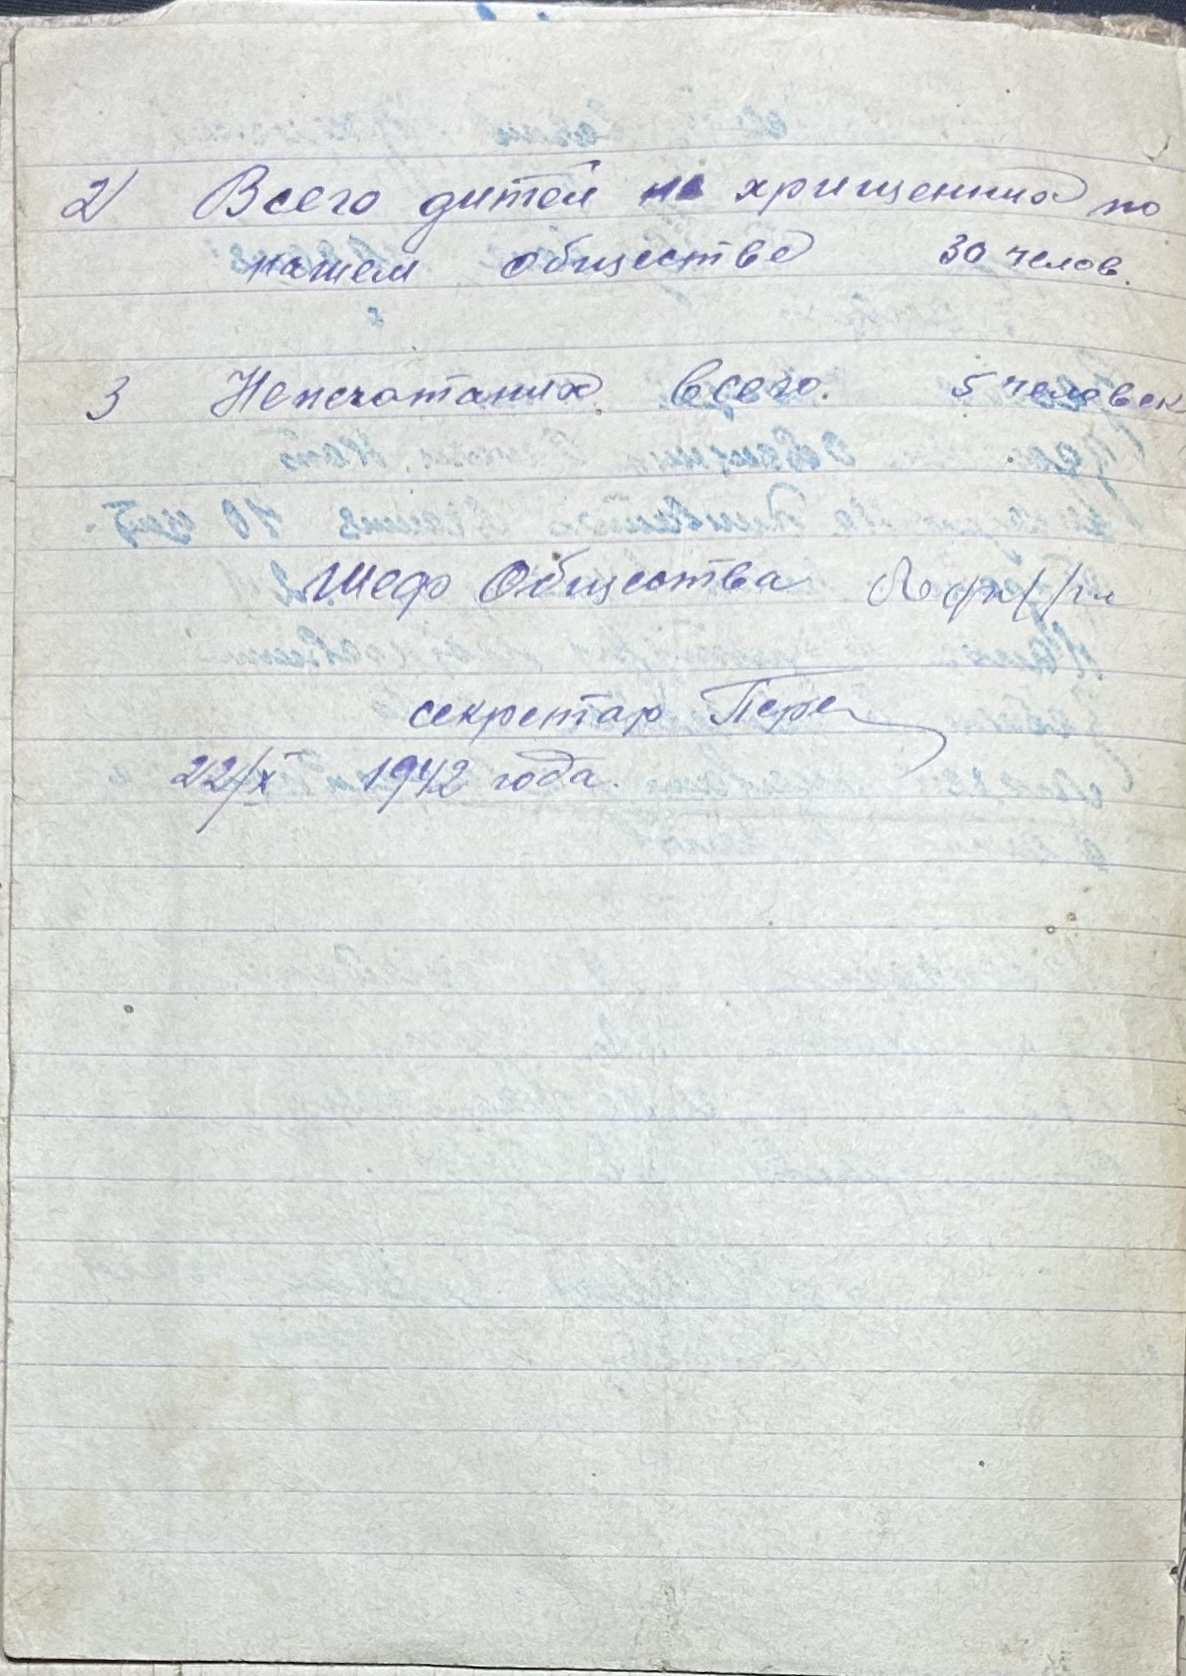 2) Всего дитей не хрищенних по
нашем обществе 30 челов.
3 Непсчатаних всего. 5 человек
Шеф Общества
секретар
22/X 1942 года.